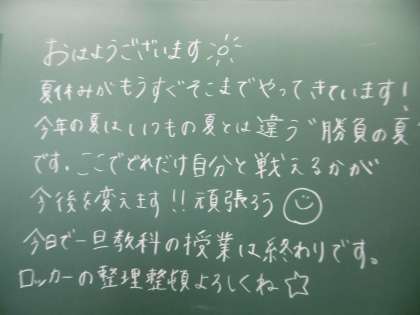 おはようございます
夏休みがもうすぐそこまでやってきています！
今年の夏はいつもの夏とは違う"勝負の夏"
です。ここでどれだけ自分と戦えるかが
今後を変えます!!頑張ろう
今日で一旦教科の授業は終わりです。
ロッカーの整理整頓よろしくね☆